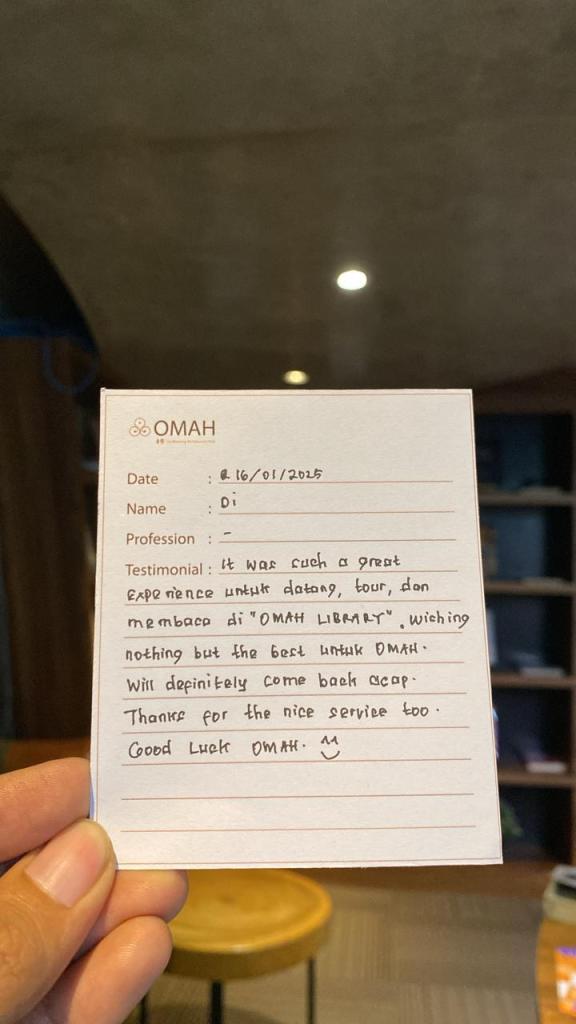 OMAH
Date : 16/01/2025
Name : Di
Profession : -
Testimonial : It was such a great
experience untuk datang, tour, dan
membaca di "OMAH LIBRARY". wishing
nothing but the best untuk OMAH.
Will definitely come back asap.
Thanks for the nice service too.
Good Luck OMAH.